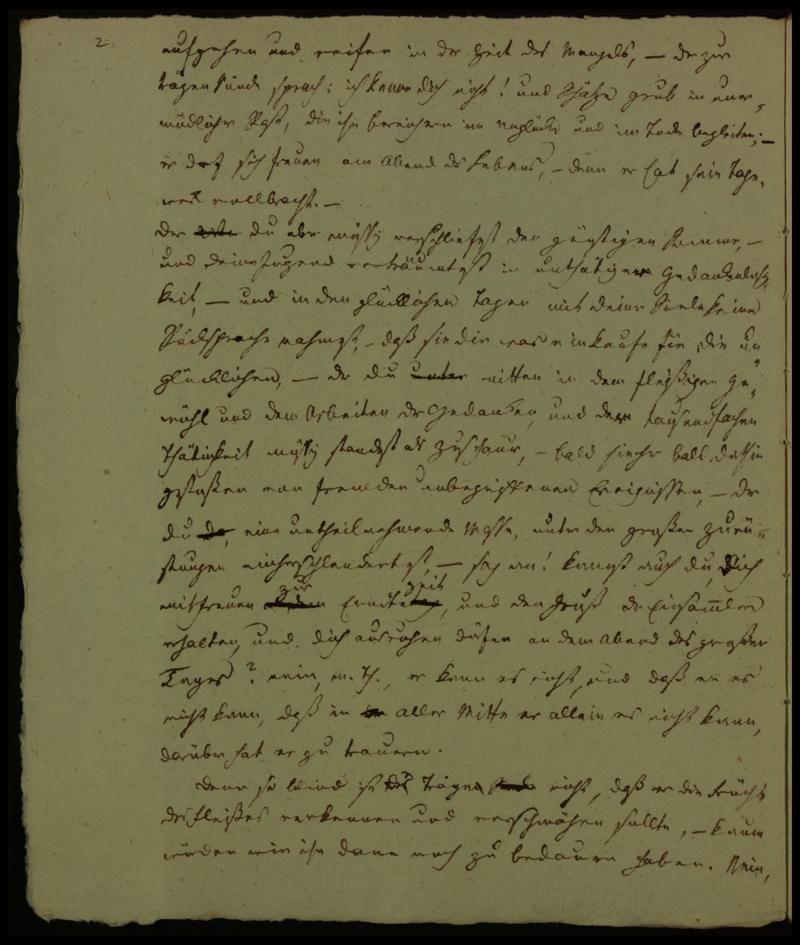 2.
aufgehen und reifen in der Zeit des Mangels, — der zur
trägen Sünde sprach: ich kenne dich nicht! und Schätze grub in uner-
müdlicher Hast, die ihn bereichern im Unglücke und im Tode begleiten; —
er darf sich freuen am Abend des Lebens, — denn er hat sein Tage-
werk vollbracht. —
Der du aber müssig verschliefest den günstigen Sommer, —
und deine Jugend verträumtest in unthätiger Gedankenlosig-
keit, — und in den glücklichen Tagen mit deiner Seele keine
Rücksprache nahmst, — daß sie dir was einkaufe für die un-
glücklichen, — der du mitten in dem fleißigen Ge-
wühl und dem Arbeiten der Gedanken, und der tausendfachen
Thätigkeit müssig standest als Zuschauer, — bald hierher bald dorthin
gestoßen von fremden unbegriffenen Ereignissen, — der
du, eine untheilnehmende Masse, unter den großen Zurü-
stungen einherschlendertest, — sag an! kannst auch du dich
mitfreuen zur Erndtezeit, und den Gruß der Einsammler
erhalten, und dich ausruhen dürfen an dem Abend des großen
Tages? nein, m. Th., er kann es nicht, und daß er es
nicht kann, daß in aller Mitte er allein es nicht kann,
darüber hat er zu trauern.
Denn so blind ist der Träge nicht, daß er die Früchte
des Fleißes verkennen und verschmähen sollte, — kaum
würden wir ihn dann noch zu bedauern haben. Nein,